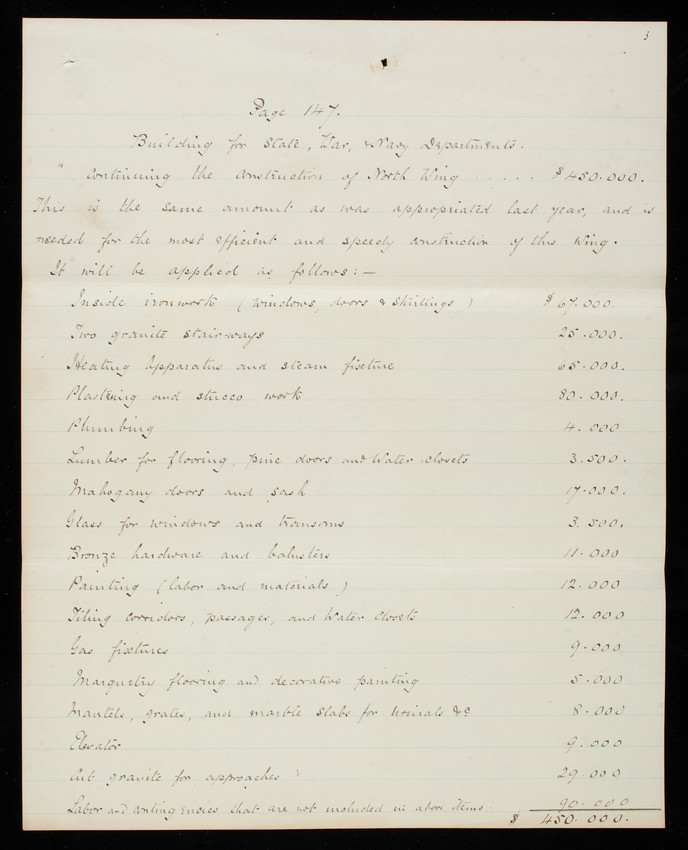 3
Page 147.
Building for State, War, & Navy Departments.
" Continuing the construction of North Wing . . . . . $450.000.
This is the same amount as was appropriated last year, and is
needed for the most efficient and speedy construction of this Wing.
It will be applied as follows:—
Inside ironwork (windows, doors & skirtings) $67.000.
Two granite stair-ways 25.000.
Heating Apparatus and steam fixture 65.000.
Plastering and stucco work 80.000.
Plumbing 4.000
Lumber for flooring, pine doors and Water closets 3.500.
Mahogany doors and sash 17.000.
Glass for windows and transoms 3.500.
Bronze hardware and balusters 11.000
Painting (labor and materials) 12.000
Tiling corridors, passages, and Water Closets 12.000
Gas fixtures 9.000
Marquetry flooring and decorative painting 5.000
Mantels, grates, and marble slabs for urinals &c 8.000
Elevator 9.000
Cut granite for approaches 29.000
Labor and contingencies that are not included in above items. 90.000
$ 450.000.